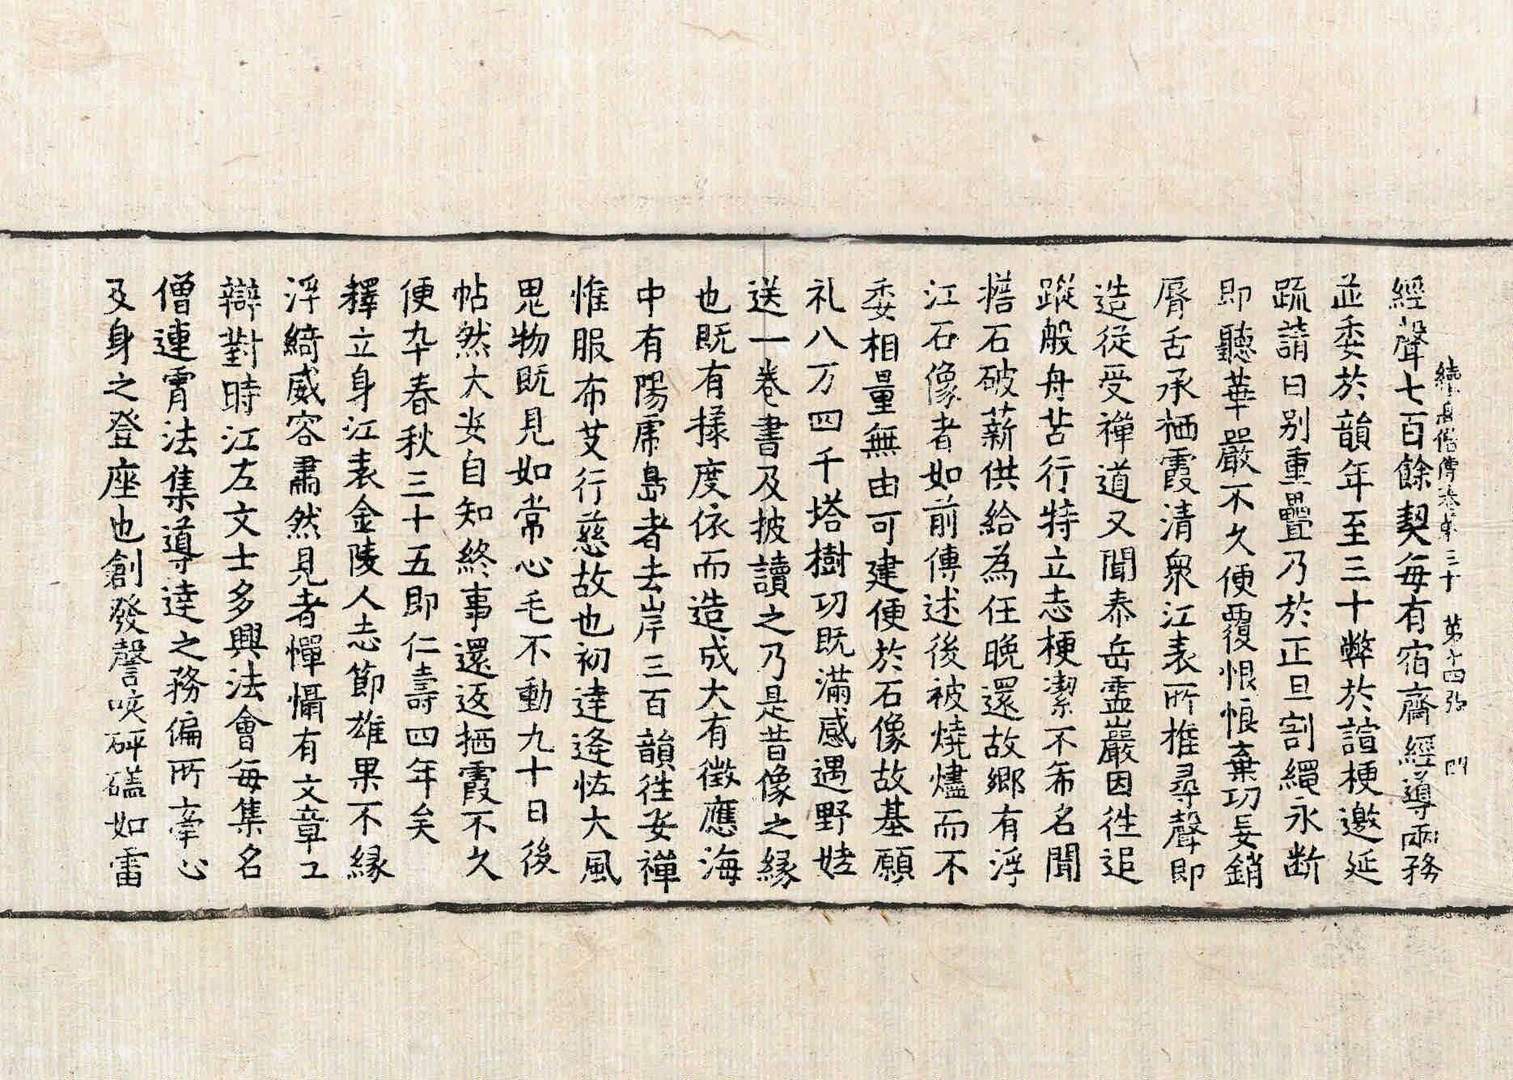 續高僧傳卷第三十　第十四張　四
經聲七百餘契每有宿齋經導兩務
並委於韻年至三十弊於諠梗邀延
䟽請日別重疊乃於正旦割繩永斷
即聽華嚴不久便覆恨恨棄功妄銷
脣舌承栖霞清衆江表所推尋聲即
造從受禪道又聞泰岳靈巖因徃追
蹤般舟苦行特立志梗潔不希名聞
擔石破薪供給為任晚還故鄉有浮
江石像者如前傳述後被燒燼而不
委相量無由可建便於石像故基願
礼八万四千塔樹功既滿感遇野姥
送一卷書及披讀之乃是昔像之緣
也既有揉度依而造成大有徵應海
中有陽虎島者去岸三百韻徃安禪
惟服布艾行慈故也初達逢怪大風
鬼物既見如常心毛不動九十日後
帖然大安自知終事還返栖霞不久
便卒春秋三十五即仁壽四年矣
釋立身江表金陵人志節雄果不緣
浮綺威容肅然見者憚懾有文章工
辯對時江左文士多興法會每集名
僧連霄法集導達之務偏所牽心
及身之登座也創發謦咳砰礚如雷